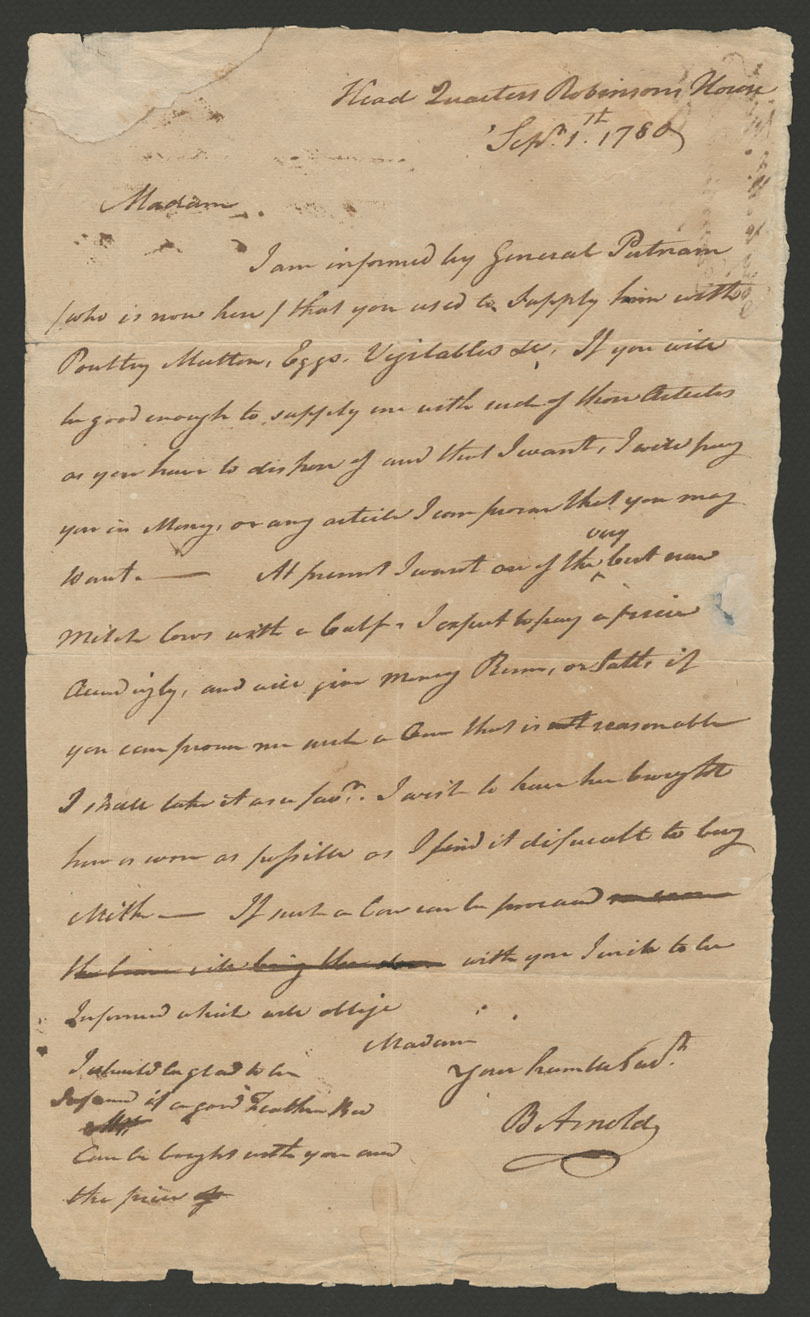 Head Quarters Robinsons House
Sepr. 1st. 1780
Madam
I am informed by General Putnam
(who is now here) that you used to Supply him with
Poultry Mutton, Eggs, Vigitables &c, If you will
be good enough to supply me with such of those Articles
as you have to dispose of and that I want, I will pay
you in Money, or any article I can procure that you may
very
want. — At present I want one of the best new
Milch Cows with a Calf. I expect to pay a price
Accordingly, and will give Money Rum, or Salt, if
you can procure me such a Cow that is reasonable
I shall take it as a favr. I wish to have her bought
how as soon as possible as I find it difficult to buy
Milk — If such a Cow can be procured
with you I wish to be
Informed which will oblige
Madam
Your humble Servt.
B Arnold
I should be glad to be
Informd if a good Feather Bed
Can be bought with you and
the price